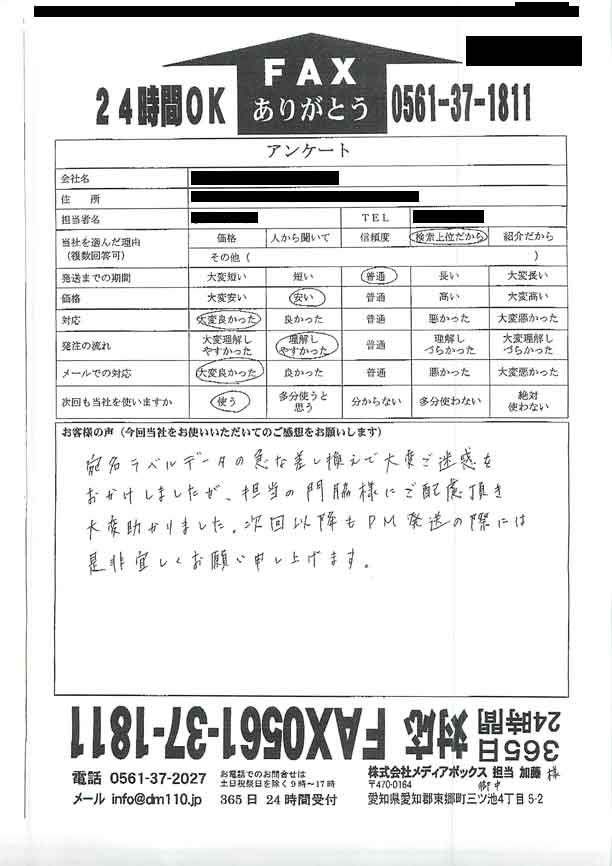 FAX
ありがとう
24時間OK
0561-37-1811
アンケート
会社名
住 所
担当者名 TEL
当社を選んだ理由(複数回答可) 価格 人から聞いて 信頼度 検索上位だから 紹介だから
その他( )
発送までの期間 大変短い 短い 普通 長い 大変長い
価格 大変安い 安い 普通 高い 大変高い
対応 大変良かった 良かった 普通 悪かった 大変悪かった
発注の流れ 大変理解しやすかった 理解しやすかった 普通 理解しづらかった 大変理解しづらかった
メールでの対応 大変良かった 良かった 普通 悪かった 大変悪かった
次回も当社を使いますか 使う 多分使うと思う 分からない 多分使わない 絶対使わない
お客様の声(今回当社をお使いいただいてのご感想をお願いします)
宛名ラベルデータの急な差し換えで大変ご迷惑を
おかけしましたが、担当の門脇様にご配慮頂き
大変助かりました。次回以降もDM発送の際には
是非宜しくお願い申し上げます。
365日24時間対応 FAX0561-37-1811
電話 0561-37-2027
メール info@dm110.jp
お電話でのお問合せは
土日祝祭日を除く9時～17時
365日24時間受付
株式会社メディアボックス 担当 加藤 様
御中
〒470-0164
愛知県愛知郡東郷町三ツ池4丁目5-2